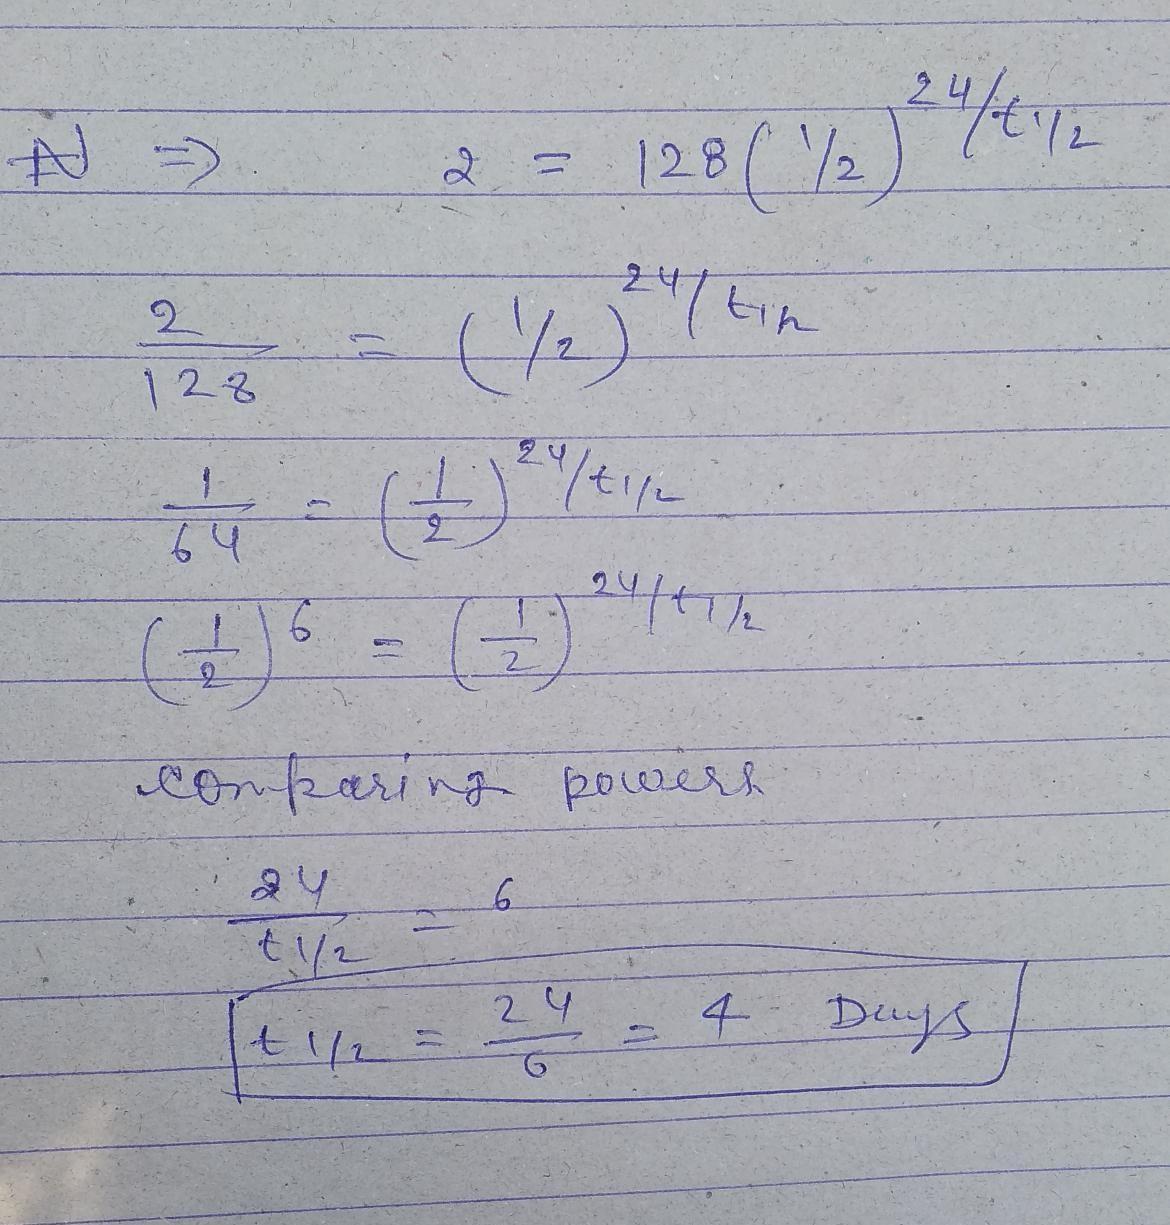 N ⇒ 2 = 128 (1/2)^24/t1/2
2/128 = (1/2)^24/t1/2
1/64 = (1/2)^24/t1/2
(1/2)^6 = (1/2)^24/t1/2
comparing powers
24/t1/2 = 6
t1/2 = 24/6 = 4 Days